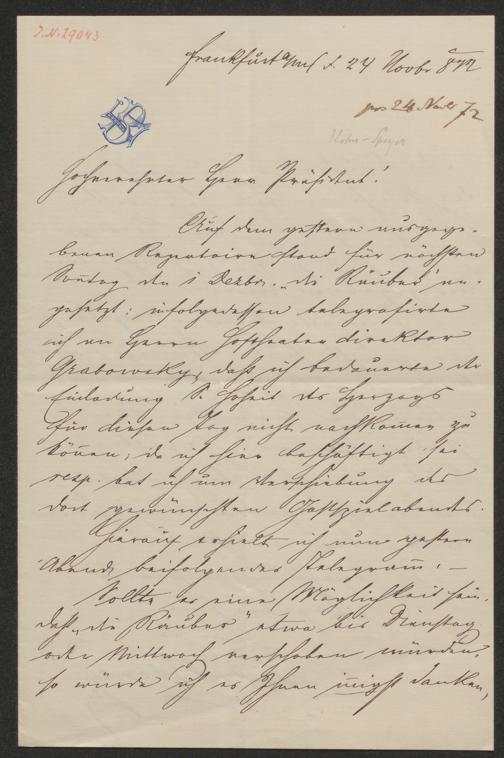 J.N. 29043
Frankfurt a/M d. 24 Novbr 872
prs 24 Novb 72
Hochverehrter Herr Präsident!
Auf dem gestern ausgege-
benen Repertoire stand für nächsten
Sonntag den 1 Dezbr. „die Räuber" an-
gesetzt; infolgedessen telegrafirte
ich an Herrn Hoftheaterdirektor
Grabowsky, daß ich bedauerte der
Einladung S. Hoheit des Herzogs
für diesen Tag nicht nachkommen zu
können, da ich hier beschäftigt sei
resp. bat ich um Verschiebung des
dort gewünschten Gastspielabends.
Hierauf erhielt ich nun gestern
Abend beifolgendes Telegramm. —
Sollte es eine Möglichkeit sein,
daß „die Räuber" etwa bis Dienstag
oder Mittwoch verschoben würden,
so würde ich es Ihnen innigst danken,